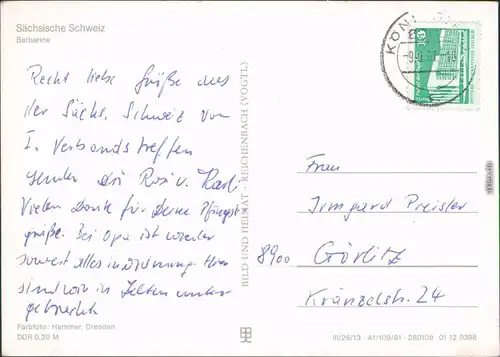 Sächsische Schweiz
Barbarine
Recht liebe Grüße aus
der Sächs. Schweiz vom
I. Verbandstreffen
senden Dir Rosi u. Karli
Vielen Dank für Deine Pfingst
grüße. Bei Opa ist wieder
soweit alles in Ordnung. Hier
sind wir in Zelten unter
gebracht.
Farbfoto: Hammer, Dresden
DDR 0,20 M
BILD UND HEIMAT · REICHENBACH (VOGTL)
KÖNI
Frau
Irmgard Preisler
8900 Görlitz
Kränzelstr. 24
III/26/13 · A1/109/81 · 280109 01 12 0398